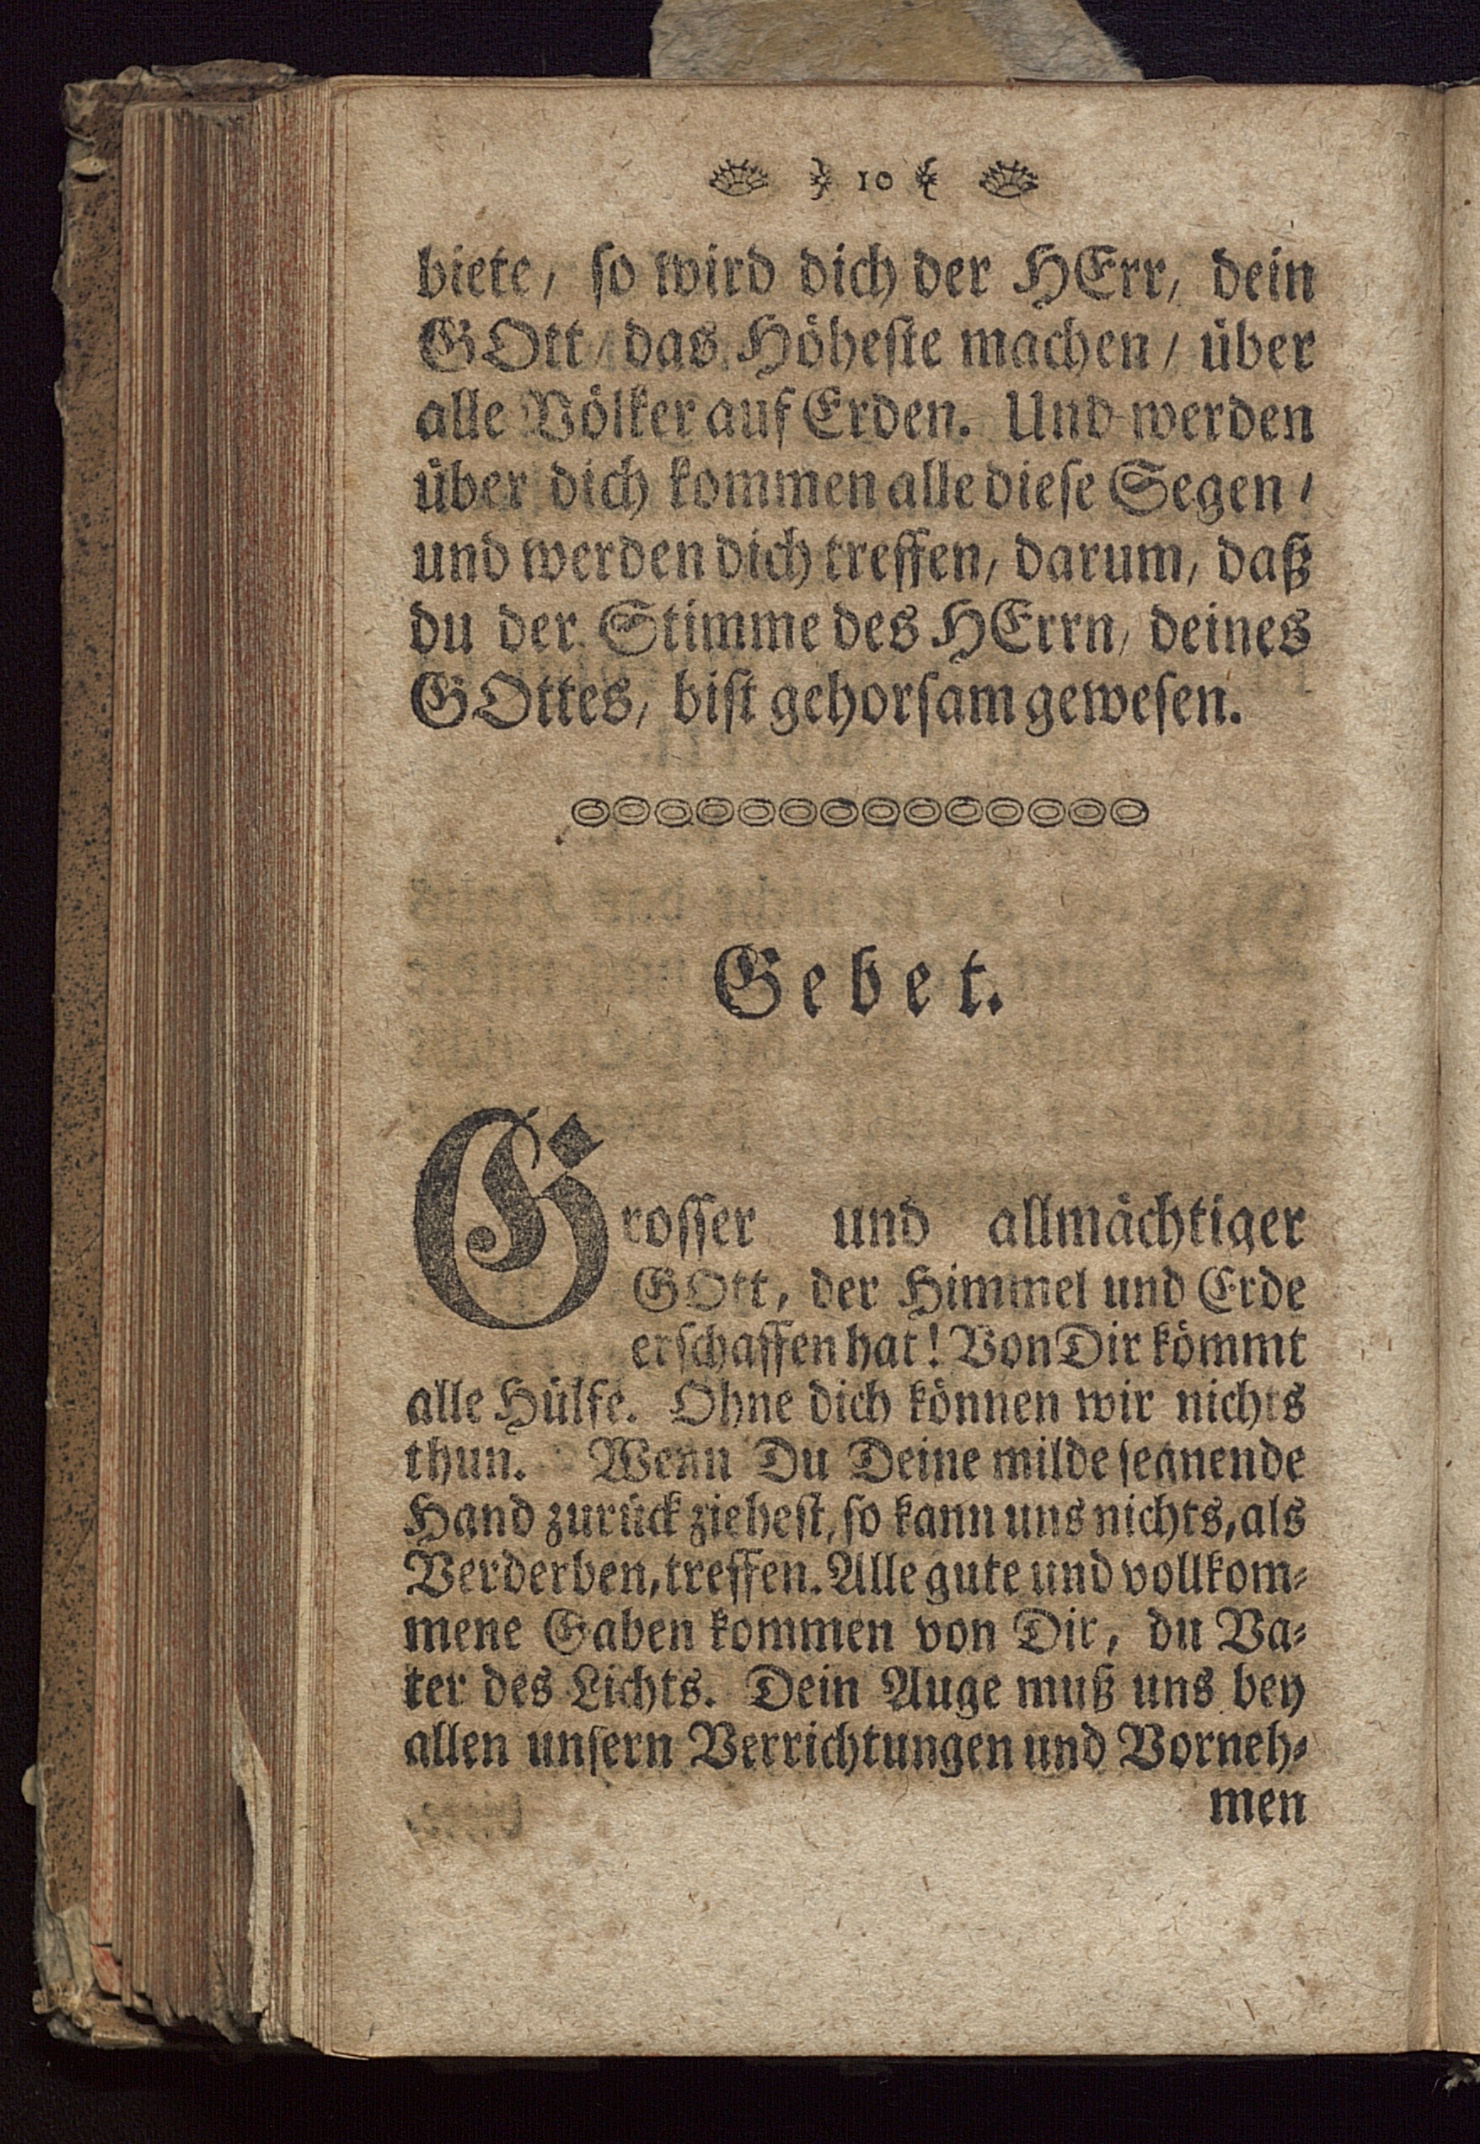 10
biete, ſo wird dich der HErr, dein
GOtt / das Höheſte machen / über
alle Völker auf Erden. Und werden
über dich kommen alle dieſe Segen /
und werden dich treffen, darum, daß
du der Stimme des HErrn, deines
GOttes, biſt gehorſam gewesen.
Gebet.
Groſſer und allmächtiger
GOtt, der Himmel und Erde
erſchaffen hat! Von Dir kömmt
alle Hülfe. Ohne dich können wir nichts
thun. Wenn Du Deine milde ſegnende
Hand zurück zieheſt, ſo kann uns nichts, als
Verderben, treffen. Alle gute und vollkom-
mene Gaben kommen von Dir, du Va-
ter des Lichts. Dein Auge muß uns bey
allen unſern Verrichtungen und Vorneh-
men